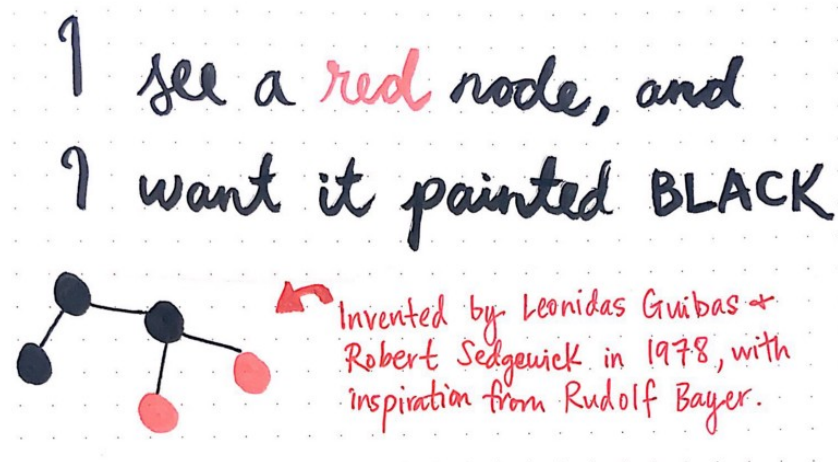 I see a red node, and
I want it painted BLACK
Invented by Leonidas Guibas &
Robert Sedgewick in 1978, with
inspiration from Rudolf Bayer.